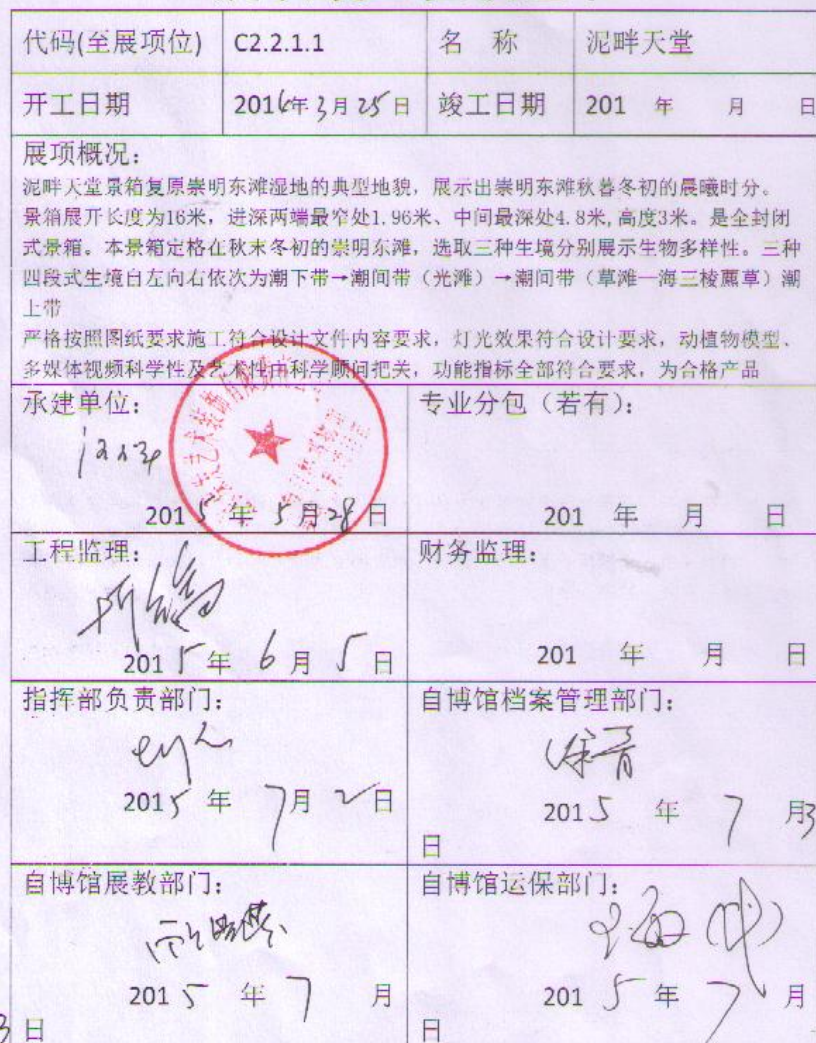 代码(至展项位) C2.2.1.1 名 称 泥畔天堂
开工日期 2014年3月25日 竣工日期 201 年 月 日
展项概况：
泥畔天堂景箱复原崇明东滩湿地的典型地貌，展示出崇明东滩秋暮冬初的晨曦时分。
景箱展开长度为16米，进深两端最窄处1.96米、中间最深处4.8米,高度3米。是全封闭
式景箱。本景箱定格在秋末冬初的崇明东滩，选取三种生境分别展示生物多样性。三种
四段式生境自左向右依次为潮下带→潮间带（光滩）→潮间带（草滩—海三棱藨草）潮
上带
严格按照图纸要求施工符合设计文件内容要求，灯光效果符合设计要求，动植物模型、
多媒体视频科学性及艺术性由科学顾问把关，功能指标全部符合要求，为合格产品
承建单位： 专业分包（若有）：
2015年5月28日 201 年 月 日
工程监理： 财务监理：
2015年6月5日 201 年 月 日
指挥部负责部门： 自博馆档案管理部门：
徐晋
2015年7月2日 2015年7月3
日
自博馆展教部门： 自博馆运保部门：
2015年7月 2015年7月
3日 日